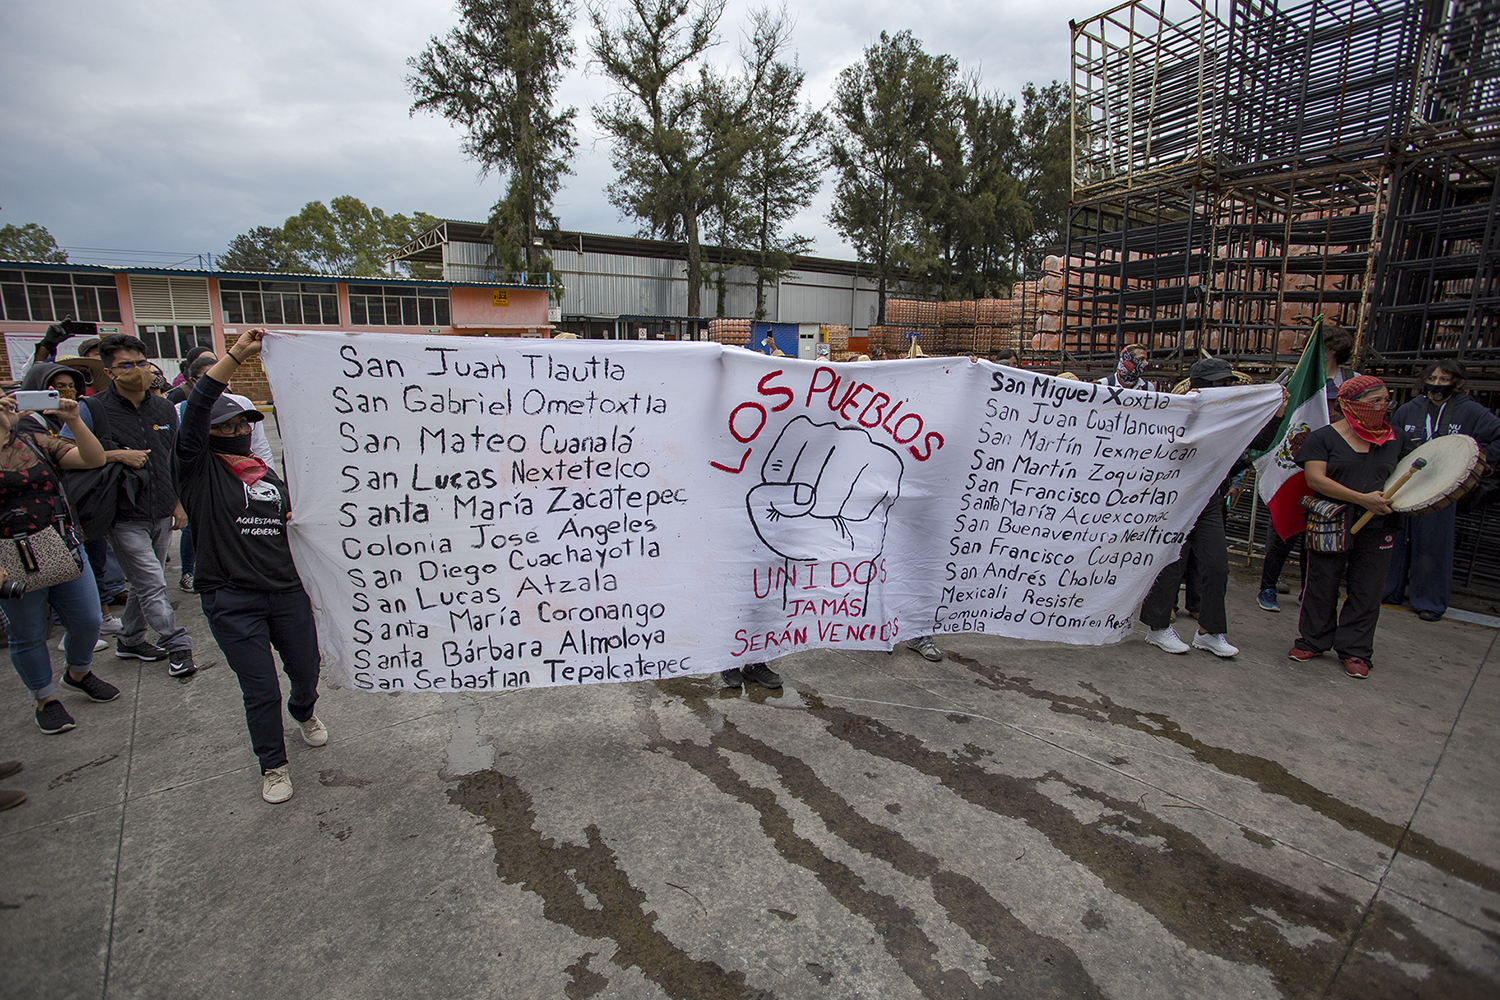 San Juan Tlautla
San Gabriel Ometoxtla
San Mateo Cuanalá
San Lucas Nextetelco
Santa María Zacatepec
Colonia José Ángeles
San Diego Cuachayotla
San Lucas Atzala
Santa María Coronango
Santa Bárbara Almoloya
San Sebastian Tepalcatepec
LOS PUEBLOS
UNIDOS
JAMÁS
SERÁN VENCIDOS
San Miguel Xoxtla
San Juan Cuatlancingo
San Martín Texmelucan
San Martín Zoquiapan
San Francisco Ocotlan
Santa María Acuexcomac
San Buenaventura Nealtican
San Francisco Cuapan
San Andrés Cholula
Mexicali Resiste
Comunidad Otomí en
Puebla
AQUÍ ESTAMOS
MI GENERAL